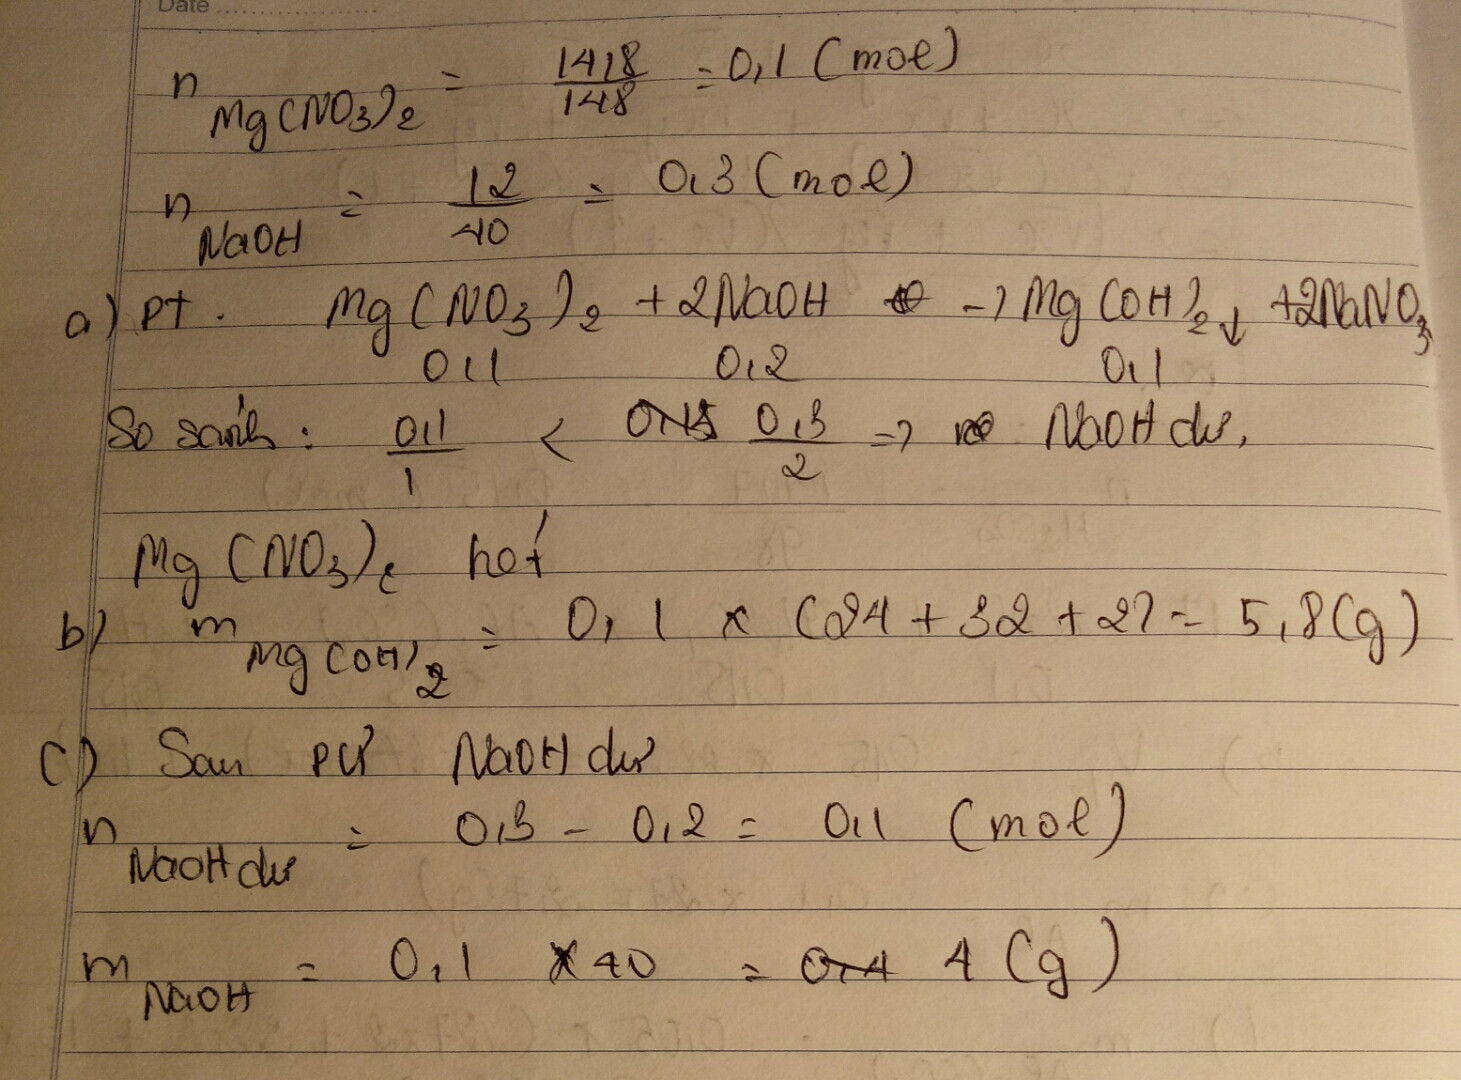 Date
n Mg(NO3)2 = 14,8/148 = 0,1 (mol)
n NaOH = 12/40 = 0,3 (mol)
a) PT. Mg(NO3)2 + 2NaOH → Mg(OH)2↓ + 2NaNO3
0,1 0,2 0,1
So sánh: 0,1/1 < 0,3/2 => NaOH dư,
Mg(NO3)2 hết
b) m Mg(OH)2 = 0,1 x (24 + 32 + 2) = 5,8(g)
c) Sau PƯ NaOH dư
n NaOH dư = 0,3 - 0,2 = 0,1 (mol)
m NaOH = 0,1 x 40 = 4 (g)